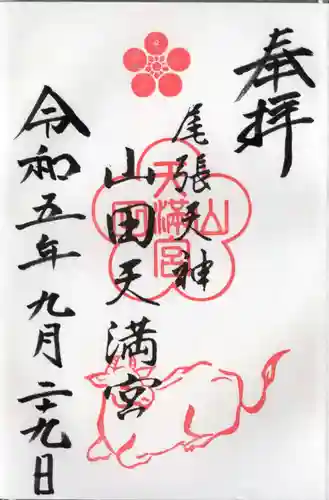 奉拝
尾張天神
山田天満宮
山田天満宮
令和五年九月二十九日